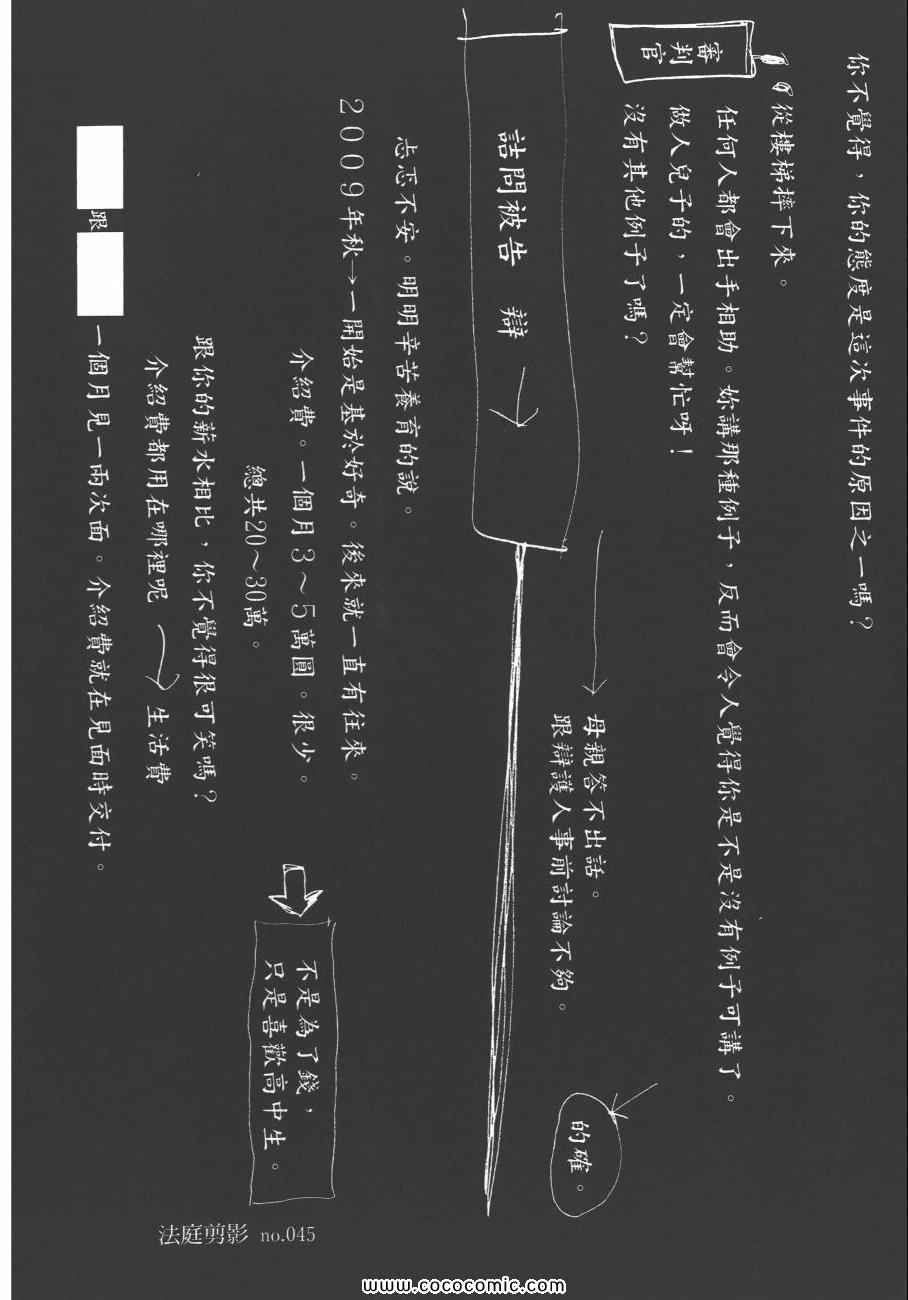 你不覺得，你的態度是這次事件的原因之一嗎？
審判官
從樓梯摔下來。
任何人都會出手相助。妳講那種例子，反而會令人覺得你是不是沒有例子可講了。
做人兒子的，一定會幫忙呀！
沒有其他例子了嗎？
母親答不出話。
跟辯護人事前討論不夠。
的確。
詰問被告 辯
忐忑不安。明明辛苦養育的說。
2009年秋→一開始是基於好奇。後來就一直有往來。
介紹費。一個月3～5萬圓。很少。
總共20～30萬。
不是為了錢，
只是喜歡高中生。
跟你的薪水相比，你不覺得很可笑嗎？
介紹費都用在哪裡呢→生活費
跟 一個月見一兩次面。介紹費就在見面時交付。
法庭剪影 no.045
www.cococomic.com